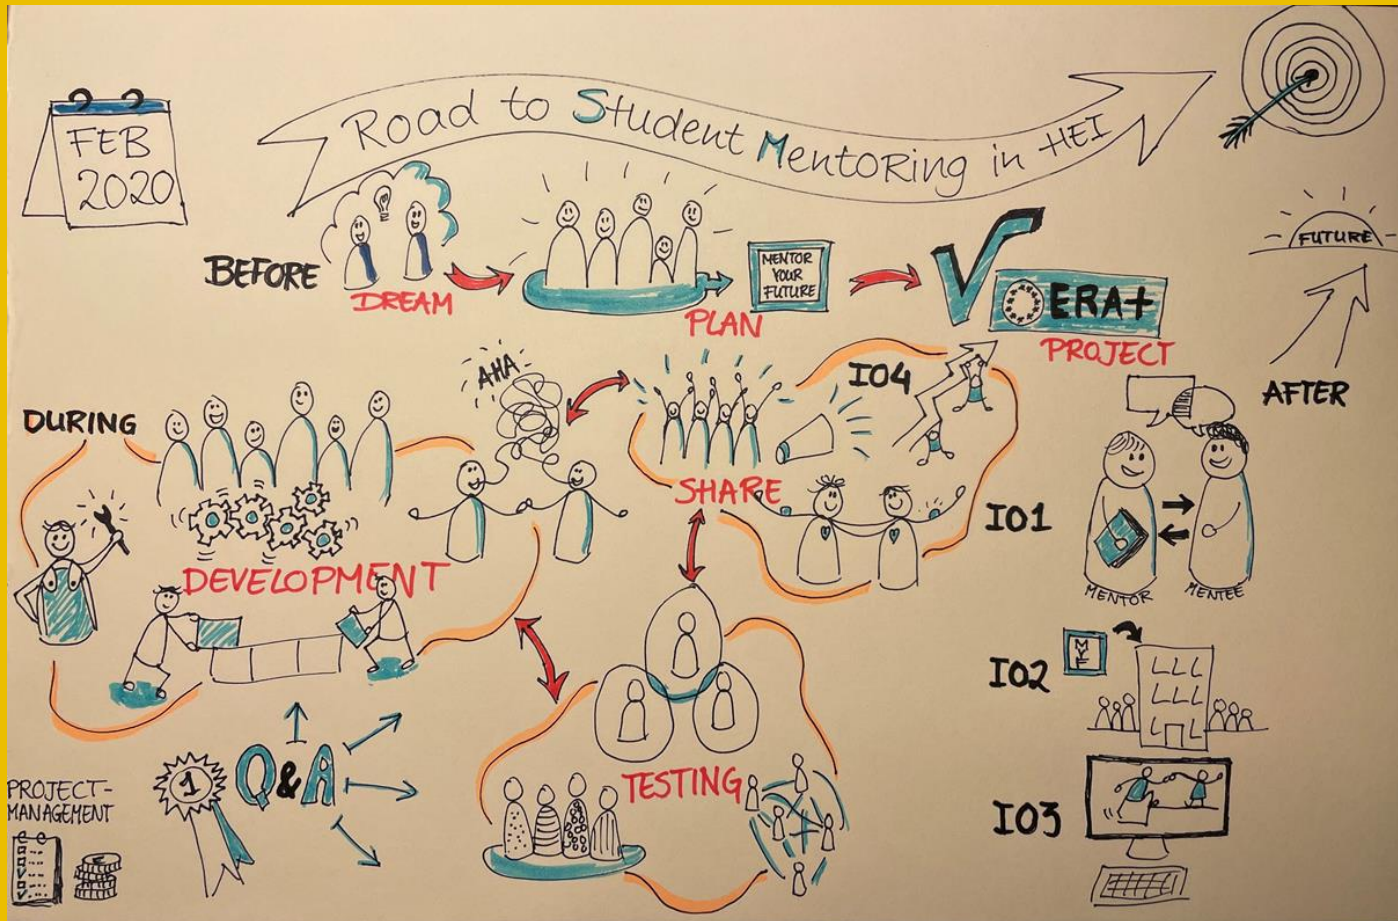 FEB
2020
Road to Student MentoRing in HEI
BEFORE
DREAM
PLAN
MENTOR
YOUR
FUTURE
ERA+
PROJECT
FUTURE
AFTER
DURING
AHA
DEVELOPMENT
SHARE
IO4
IO1
MENTOR
MENTEE
IO2
MYF
IO3
TESTING
1
Q&A
PROJECT-
MANAGEMENT